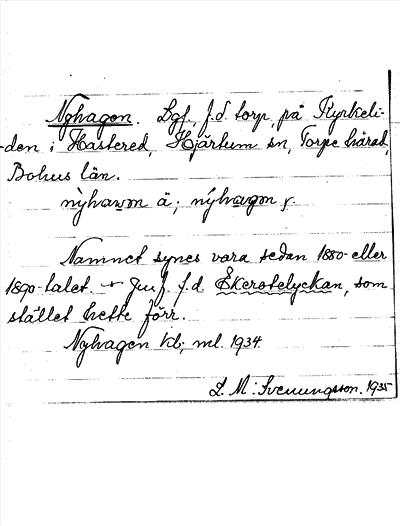 Nyhagen. Lgf, f.d. torp, på Kyrkeli-
den i Hastered, Hjärtum sn, Torpe härad,
Bohus län.
nỳhawən ä; nýhagən y.
Namnet synes vara sedan 1880- eller
1890-talet. Jmf. f.d. Ekerotelyckan, som
stället hette förr.
Nyhagen kb; ml. 1934.
L. M: Svenungsson. 1935